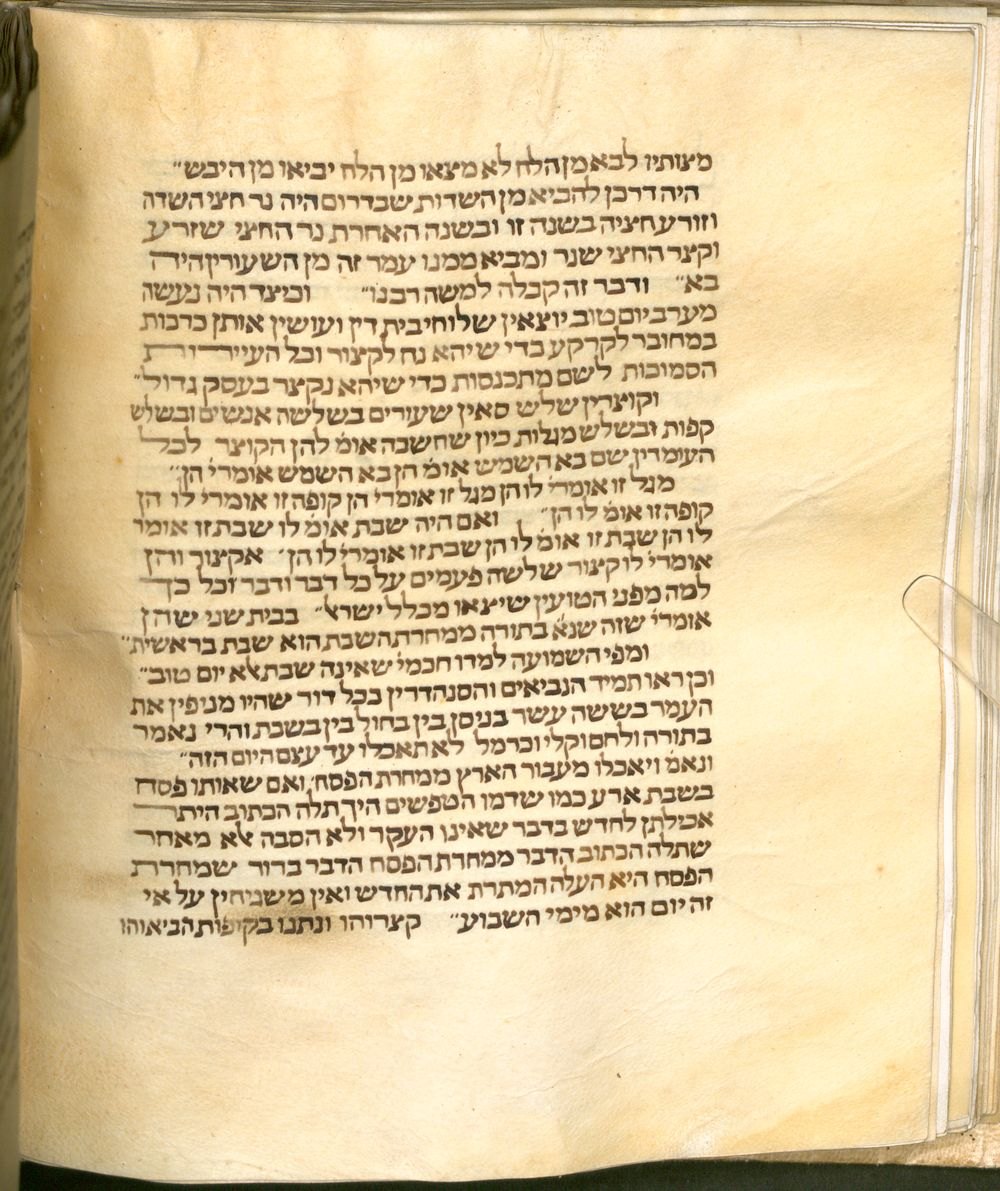 מצותיו לבא מן הלח לא מצאו מן הלח יביאו מן היבש״
היה דרכן להביא מן השדות שבדרום היה נר חצי השדה
וזורע חציה בשנה זו ובשנה האחרת נר החצי שזרע
וקצר החצי שנר ומביא ממנו עמר זה מן השעורין היה
בא״ ודבר זה קבלה למשה רבנו״ וכיצד היה נעשה
מערב יום טוב יוצאין שלוחי בית דין ועושין אותן כרכות
במחובר לקרקע כדי שיהא נח לקצור וכל העיירות
הסמוכות לשם מתכנסות כדי שיהא נקצר בעסק גדול״
וקוצרין שלש סאין שעורים בשלשה אנשים ובשלש
קפות ובשלש מגלות כיון שחשכה אומ׳ להן הקוצר לכל
העומדין שם בא השמש אומ׳ הן בא השמש אומרי׳ הן״
מגל זו אומרי׳ לו הן מגל זו אומרי׳ הן קופה זו אומרי׳ לו הן
קופה זו אומ׳ לו הן״ ואם היה שבת אומ׳ לו שבת זו אומרי׳
לו הן שבת זו אומ׳ לו הן שבת זו אומרי׳ לו הן׳ אקצור והן
אומרי׳ לו קצור שלשה פעמים על כל דבר ודבר וכל כך
למה מפני הטועין שיצאו מכלל ישר׳ בבית שני שהן
אומרי׳ שזה שנא׳ בתורה ממחרת השבת הוא שבת בראשית״
ומפי השמועה למדו חכמי׳ שאינה שבת אלא יום טוב״
וכן ראו תמיד הנביאים והסנהדרין בכל דור שהיו מניפין את
העמר בששה עשר בניסן בין בחול בין בשבת והרי נאמר
בתורה ולחם וקלי וכרמל לא תאכלו עד עצם היום הזה״
ונאמ׳ ויאכלו מעבור הארץ ממחרת הפסח׳ ואם שאותו פסח
בשבת ארע כמו שדמו הטפשים היך תלה הכתוב היתר
אכילתן לחדש בדבר שאינו העקר ולא הסבה אלא מאחר
שתלה הכתוב הדבר ממחרת הפסח הדבר ברור שמחרת
הפסח היא העלה המתרת את החדש ואין משגיחין על אי
זה יום הוא מימי השבוע״ קצרוהו ונתנו בקופות הביאוהו